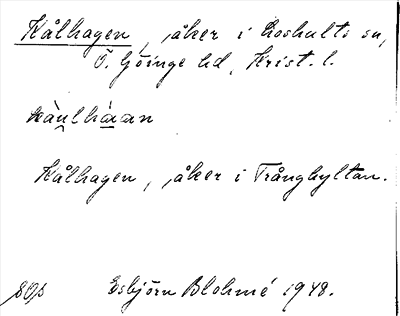 Kålhagen, åker i Loshults sn,
Ö. Göinge hd, Krist. l.
kàu̯lhàa̱an
Kålhagen, åker i Trångbyltan.
Esbjörn Blohmé 1948.